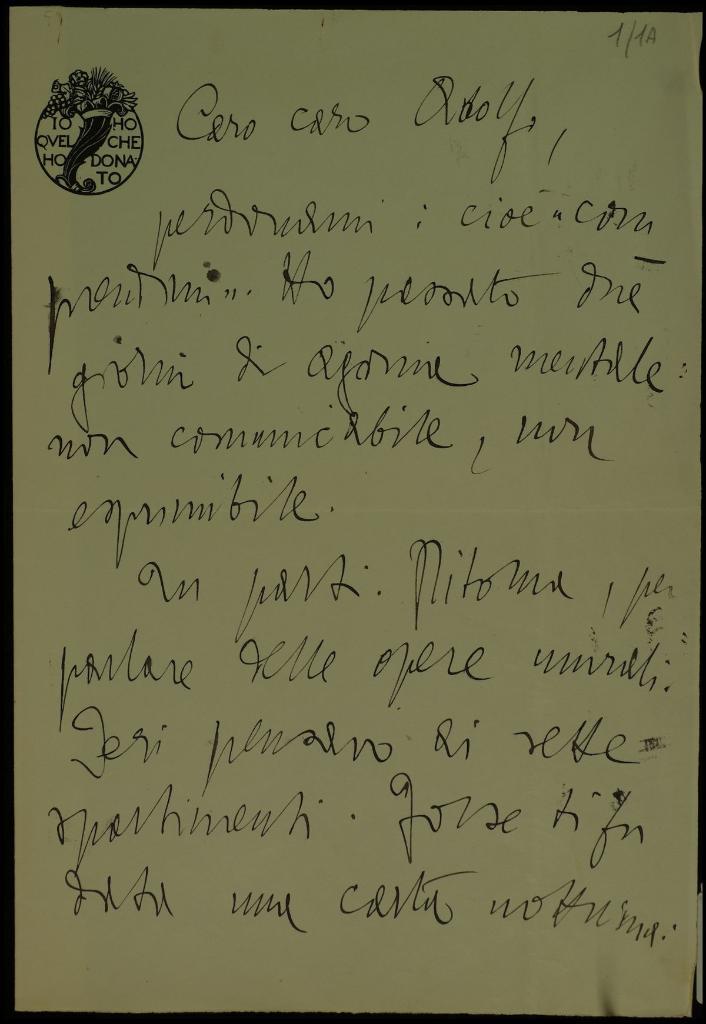 1/1A
IO HO
QVEL CHE
HO DONA
TO
Caro caro Adolfo,
perdonami: cioè "com
prendimi". Ho passato due
giorni di agonia mentale:
non comunicabile, non
esprimibile.
Tu parti. Ritorna, per
parlare delle opere murali.
Ieri pensavo ai sette
spartimenti. Forse ti fu
data una carta notturna.